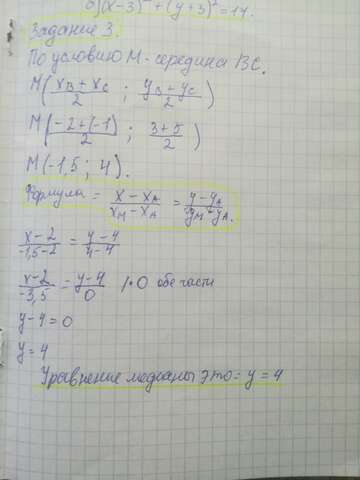 а)(x-3)² + (y+3)² = 17.
Задание 3.
По условию М - середина ВС.
M((x_B + x_C)/2 ; (y_B + y_C)/2)
M((-2+(-1))/2 ; (3+5)/2)
M(-1,5 ; 4).
Формулы = (x - x_A)/(x_M - x_A) = (y - y_A)/(y_M - y_A).
(x-2)/(-1,5-2) = (y-4)/(4-4)
(x-2)/(-3,5) = (y-4)/0 | · 0 обе части
y-4=0
y=4
Уравнение медианы это: y = 4